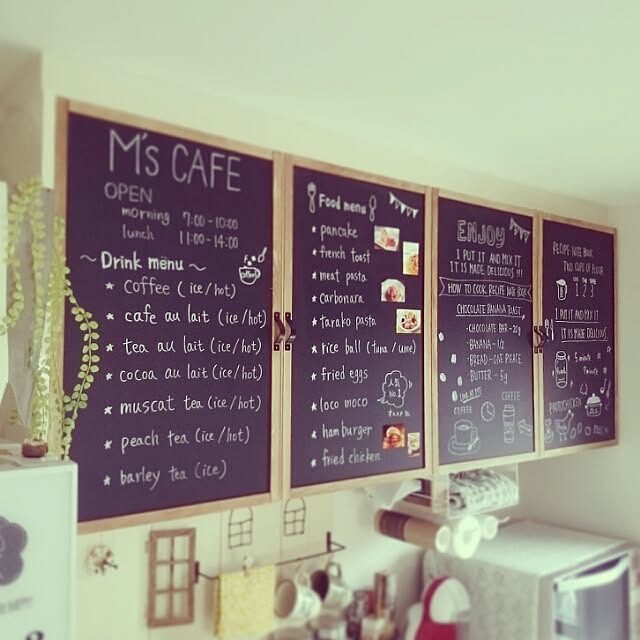 M's CAFE
OPEN
morning 7:00-10:00
lunch 11:00-14:00
~ Drink menu ~
★ coffee (ice/hot)
★ cafe au lait (ice/hot)
★ tea au lait (ice/hot)
★ cocoa au lait (ice/hot)
★ muscat tea (ice/hot)
★ peach tea (ice/hot)
★ barley tea (ice)
Food menu
★ pancake
★ french toast
★ meat pasta
★ carbonara
★ tarako pasta
★ rice ball (tuna/ume)
★ fried eggs
★ loco moco
★ hamburger
★ fried chicken
No.1
ENJOY
I PUT IT AND MIX IT
IT IS MADE DELICIOUS!!!
HOW TO COOK RECIPE NOTE BOOK
CHOCOLATE BANANA TOAST
· CHOCOLATE BAR - 20g
· BANANA - 1/2
· BREAD - ONE PIRATE
· BUTTER - 5g
COFFEE
COFFEE
RECIPE NOTE BOOK
TWO CUPS OF FLOUR
1 2 3
I PUT IT AND MIX IT
IT IS MADE DELICIOUS
5 minutes